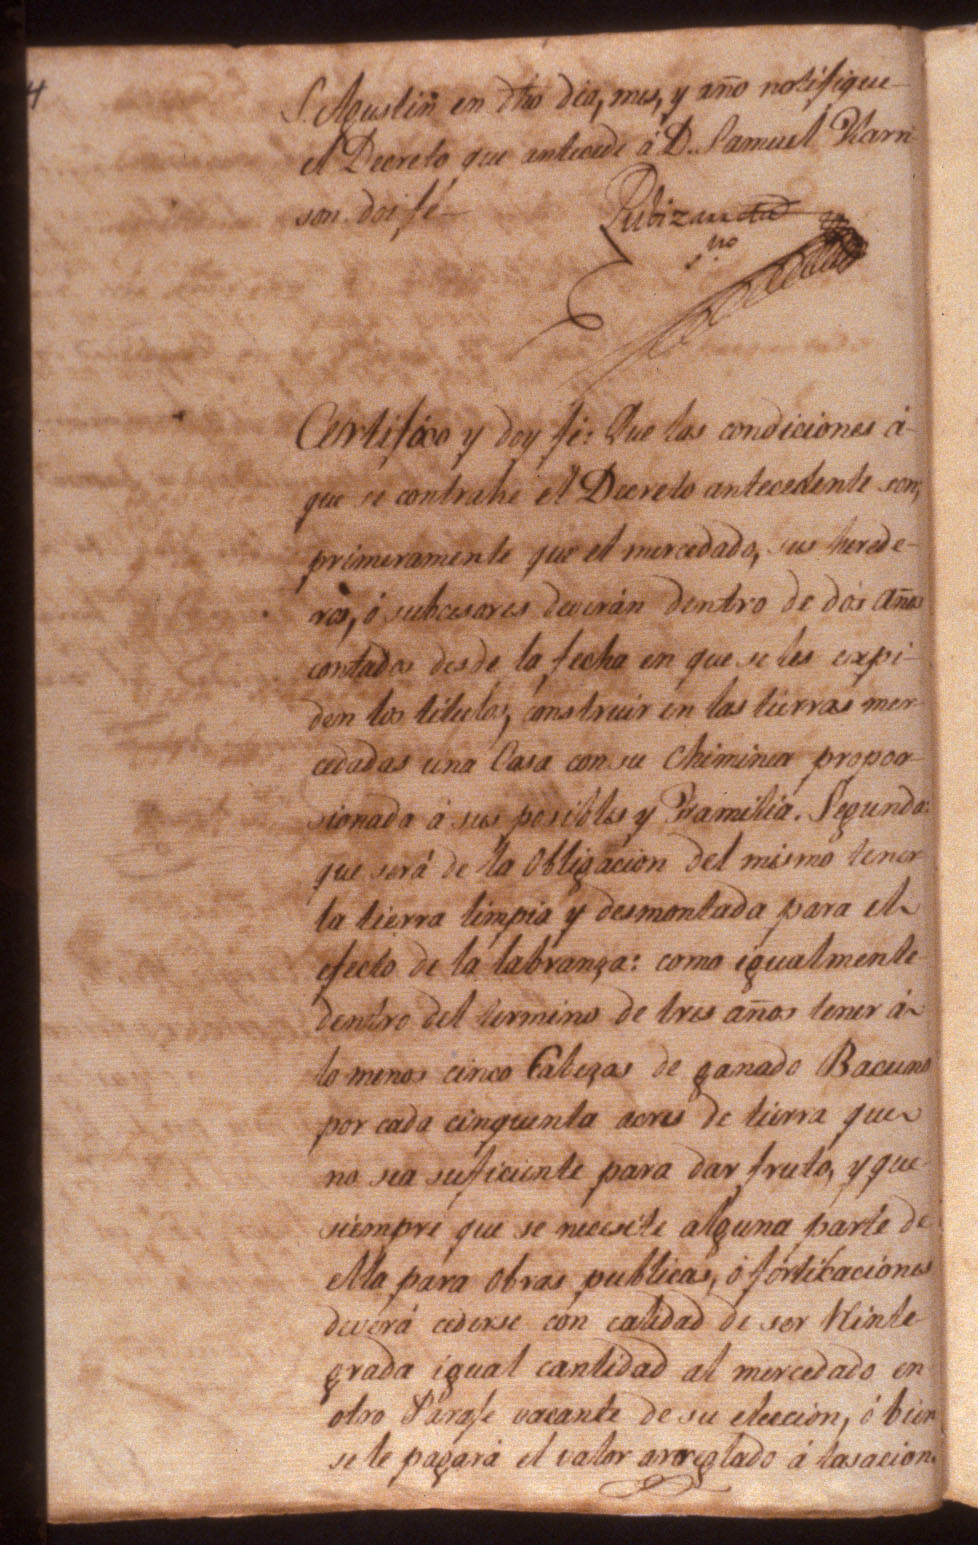 4
S. Agustin en dho dia, mes, y año notifique
el Decreto que antecede á D. Samuel Harri
son doi fé
Rubizan
s.no
Certifico y doy fé: Que las condiciones á
que se contrahe el Decreto antecedente son,
primeramente que el mercedado, sus herede-
ros, ó subcesores deverán dentro de dós Años
contados desde la fecha en que se les expi-
den los titulos, construir en las tierras mer-
cedadas una Casa con su Chiminea propor-
sionada á sus posibles y Framilia. Segunda:
que será de la Obligacion del mismo tener
la tierra limpia y desmontada para el
efecto de la labranza: como igualmente
dentro del termino de tres años tener á
lo menos cinco Cabezas de ganado Bacuno
por cada cinquenta acres de tierra que
no sea suficiente para dar fruto, y que
siempre que se necesite alguna parte de
ella para Obras publicas, ó fortificaciones
deverá cederse con calidad de ser Reinte
grada igual cantidad al mercedado en
otro Parage vacante de su eleccion, ó bien
se le pagará el valor arreglado á tasacion.